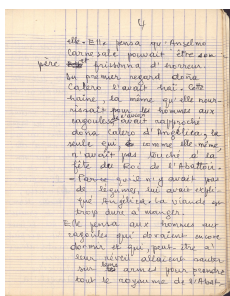 4
elle. Elle pensa qu'Anselmo
Carnesale pouvait être son
père et frissonna d'horreur
Du premier regard doña
Calero l'avait haï. Cette
haine, la même qu'elle nour-
rissait pour les hommes aux
cagoules avait rapproché
doña Calero d'Angelica, la
seule qui comme elle-même,
n'avait pas touché à la
fête du Roi de l'Abattoir.
- Parce qu'il n'y avait pas
de légumes, lui avait expli-
qué Angelica. La viande est
trop dure à manger.
Elle pensa aux hommes aux
cagoules qui devaient encore
dormir et qui, peut-être à
leur réveil allaient sauter
sur leurs armes pour prendre
tout le royaume de l'Abat-